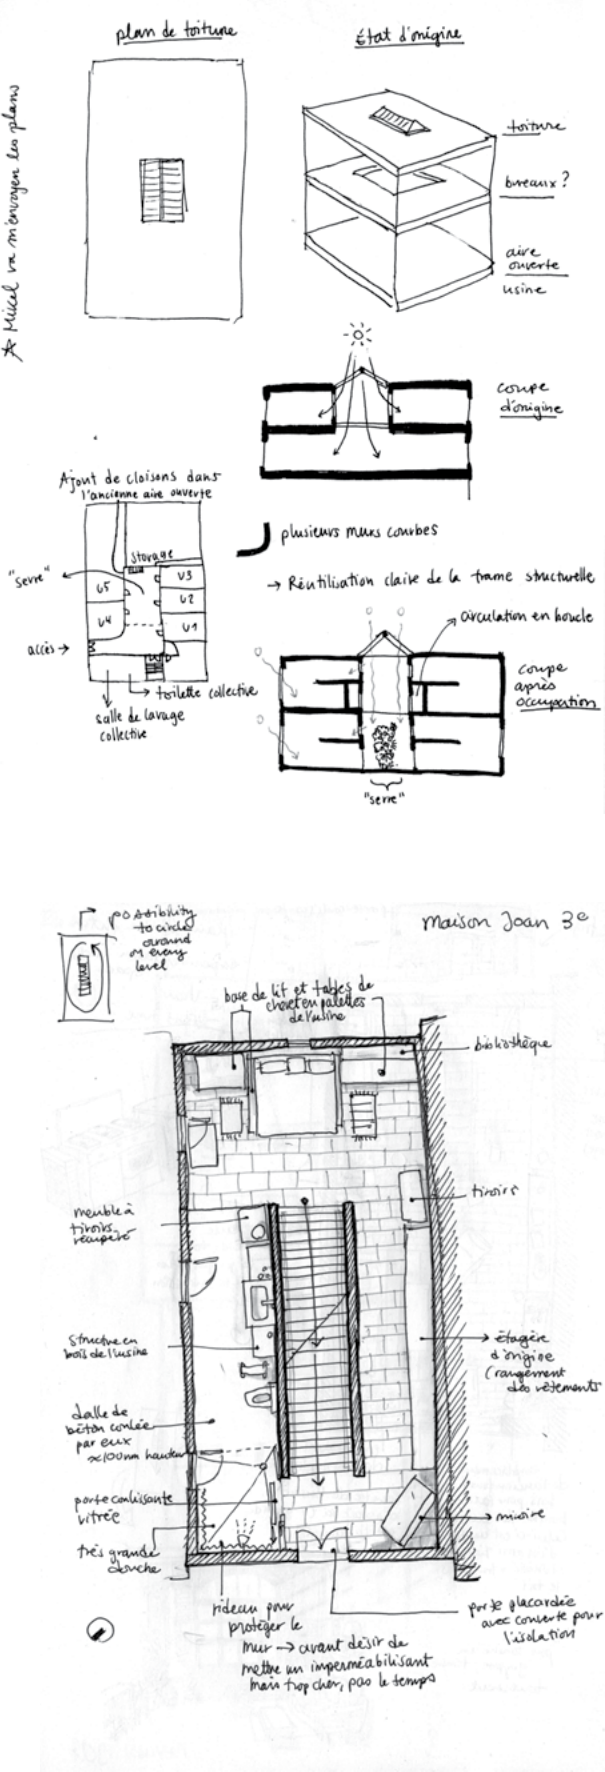 plan de toiture
État d'origine
toiture
bureaux ?
aire
ouverte
usine
va m'envoyer les plans
coupe
d'origine
Ajout de cloisons dans
l'ancienne aire ouverte
storage
"serre"
U5
U4
U3
U2
U1
accès →
toilette collective
salle de lavage
collective
plusieurs murs courbes
→ Réutilisation claire de la trame structurelle
circulation en boucle
coupe
après
occupation
"serre"
possibility
to circle
around
on every
level
Maison Joan 3e
base de lit et tables de
chevet en palettes
de l'usine
bibliothèque
meuble à
tiroirs
récupéré
tiroirs
structure en
bois de l'usine
étagère
d'origine
(rangement
des vêtements
dalle de
béton coulée
par eux
≈100mm hauteur
porte coulissante
vitrée
très grande
douche
miroire
rideau pour
protéger le
mur → avant désir de
mettre un imperméabilisant
mais trop cher, pas le temps
porte placardée
avec couverte pour
l'isolation